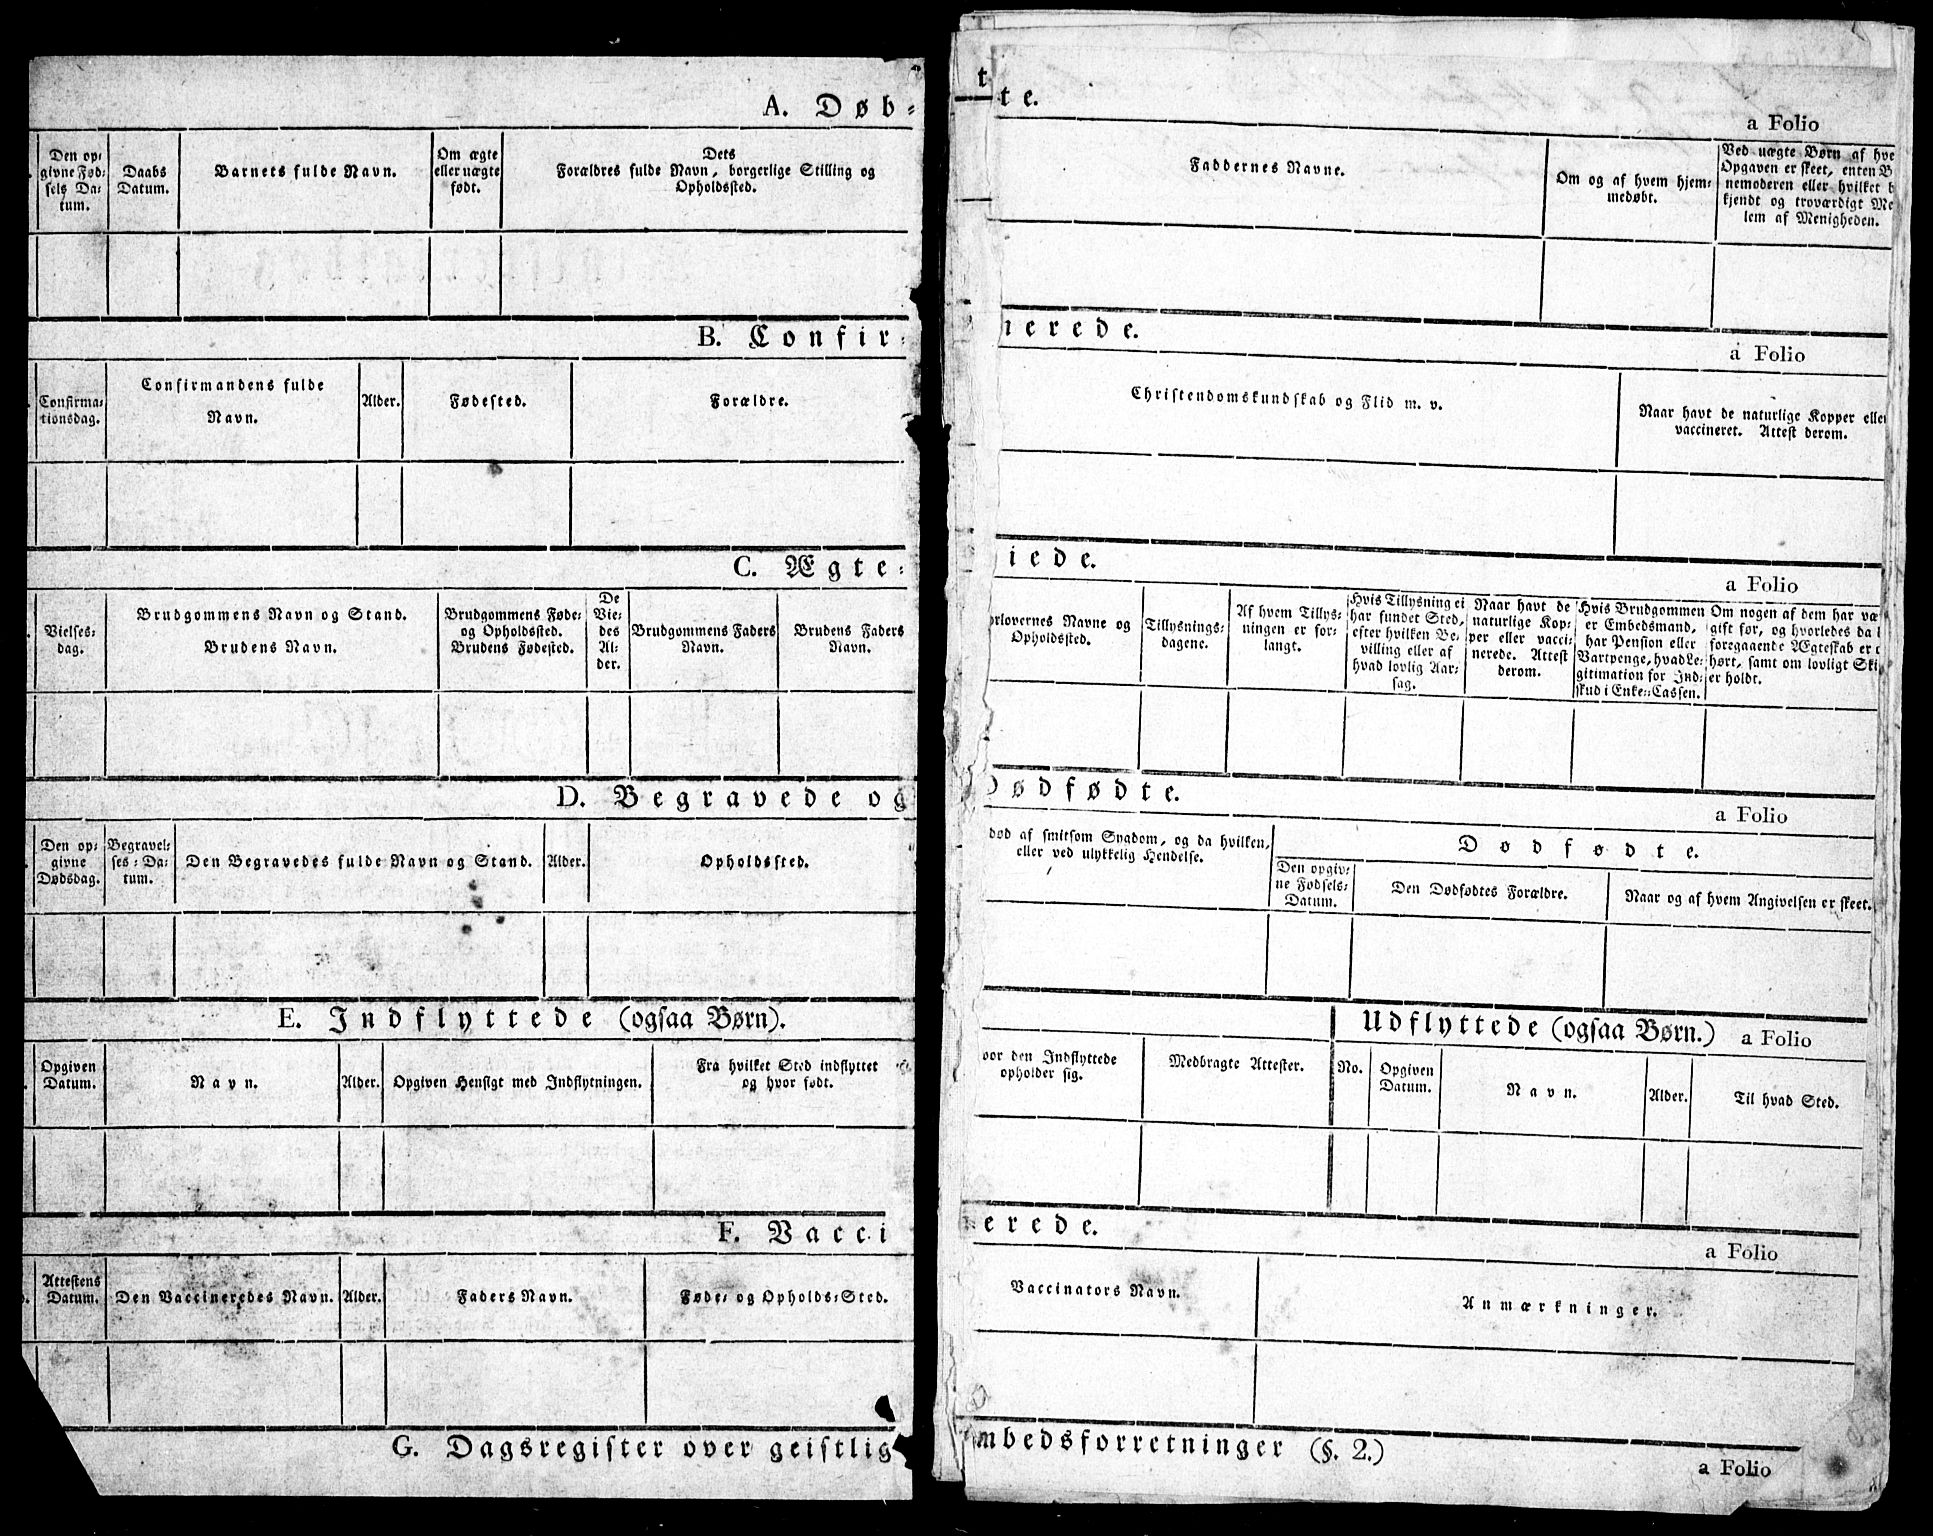 A. Døb-
Den op-
givne Fød-
sels Da-
tum.
Daabs
Datum.
Barnets fulde Navn.
Om ægte
eller uægte
født.
Dets
Forældres fulde Navn, borgerlige Stilling og
Opholdssted.
B. Confir-
Confirma-
tionsdag.
Confirmandens fulde
Navn.
Alder.
Fødested.
Forældre.
C. Ægte-
Vielses-
dag.
Brudgommens Navn og Stand.
Brudens Navn.
Brudgommens Føde-
og Opholdssted.
Brudens Fødested.
De
Vie-
des
Al-
der.
Brudgommens Faders
Navn.
Brudens Faders
Navn.
D. Begravede og
Den op-
givne
Dødsdag.
Begravel-
ses-Da-
tum.
Den Begravedes fulde Navn og Stand.
Alder.
Opholdssted.
E. Indflyttede (ogsaa Børn).
Opgiven
Datum.
Navn.
Alder.
Opgiven Hensigt med Indflytningen.
Fra hvilket Sted indflyttet
og hvor født.
F. Vacci
Attestens
Datum.
Den Vaccineredes Navn.
Alder.
Faders Navn.
Føde- og Opholds-Sted.
G. Dagsregister over geistlig
t
te.
a Folio
Faddernes Navne.
Om og af hvem hjem-
medøbt.
Ved uægte Børn af hve
Opgaven er skeet, enten B
nemoderen eller hvilket b
kjendt og troværdigt Me
lem af Menigheden.
nerede.
a Folio
Christendomskundskab og Flid m. v.
Naar havt de naturlige Kopper elle
vaccineret. Attest derom.
iede.
a Folio
rlovernes Navne og
Opholdssted.
Tillysnings-
dagene.
Af hvem Tillys-
ningen er for-
langt.
Hvis Tillysning ei
har fundet Sted,
efter hvilken Be-
villing eller af
hvad lovlig Aar-
sag.
Naar havt de
naturlige Kop-
per eller vacci-
nerede. Attest
derom.
Hvis Brudgommen
er Embedsmand,
har Pension eller
Vartpenge, hvad Le-
gitimation for Ind-
skud i Enke-Cassen.
Om nogen af dem har væ
gift før, og hvorledes da
foregaaende Ægteskab er
hørt, samt om lovligt Ski
er holdt.
Dødfødte.
a Folio
død af smitsom Sygdom, og da hvilken,
eller ved ulykkelig Hendelse.
Dødfødte.
Den opgiv-
ne Fødsels-
Datum.
Den Dødfødtes Forældre.
Naar og af hvem Angivelsen er skeet.
Udflyttede (ogsaa Børn.) a Folio
vor den Indflyttede
opholder sig.
Medbragte Attester.
No.
Opgiven
Datum.
Navn.
Alder.
Til hvad Sted.
erede.
a Folio
Vaccinators Navn.
Anmærkninger.
mbedsforretninger (§. 2.)
a Folio